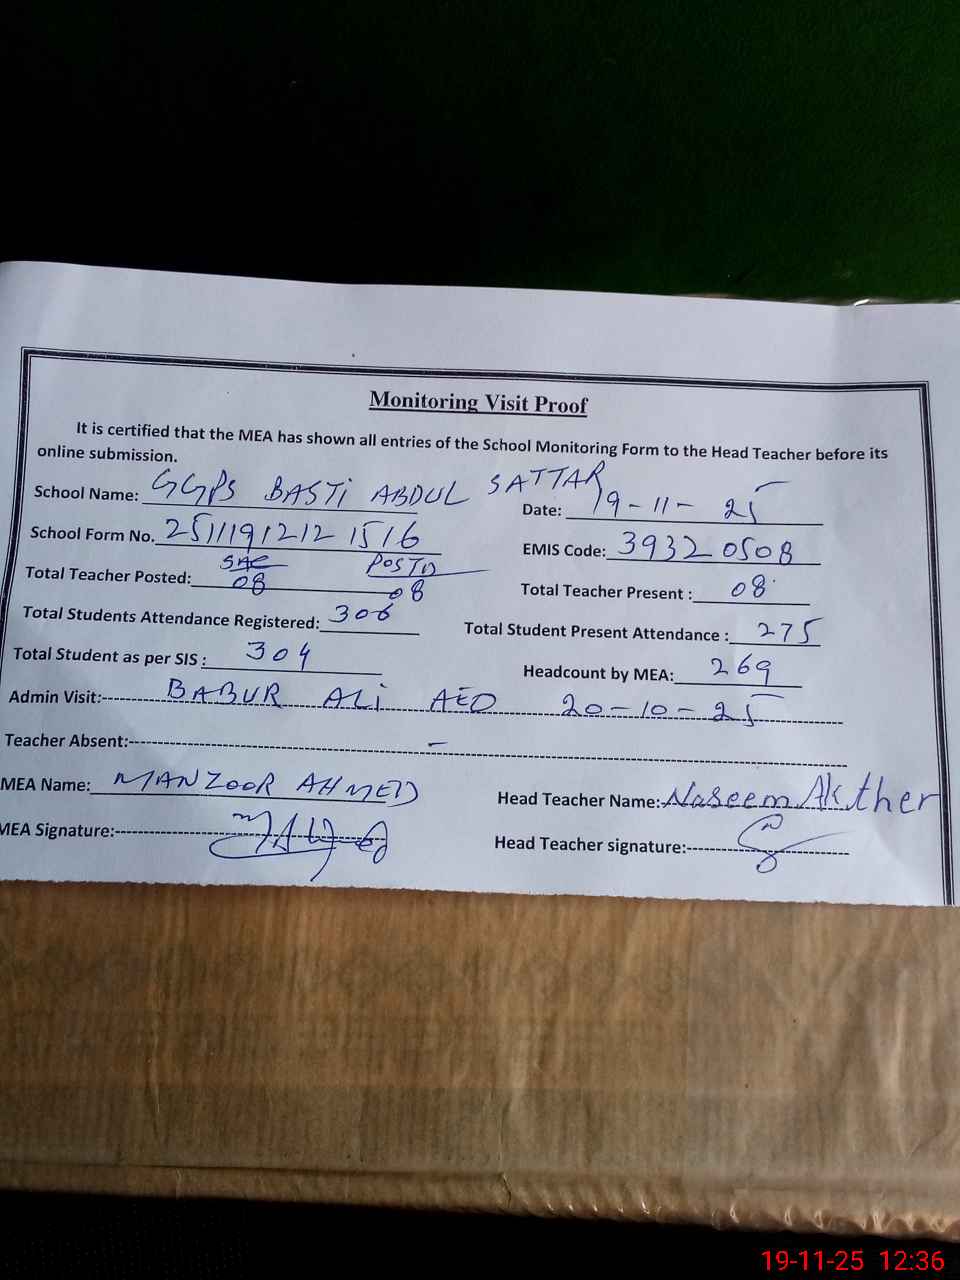 Monitoring Visit Proof
It is certified that the MEA has shown all entries of the School Monitoring Form to the Head Teacher before its
online submission.
School Name: GGPS BASTi ABDUL SATTAR Date: 19-11-25
School Form No. 25111912121516 EMIS Code: 39320508
Total Teacher Posted: SNE 08 POSTD 08 Total Teacher Present : 08
Total Students Attendance Registered: 306 Total Student Present Attendance : 275
Total Student as per SIS : 304 Headcount by MEA: 269
Admin Visit: BABUR ALi AEO 20-10-25
Teacher Absent: -
MEA Name: MANZOOR AHMED Head Teacher Name: Naseem Akther
MEA Signature: Head Teacher signature:
19-11-25 12:36